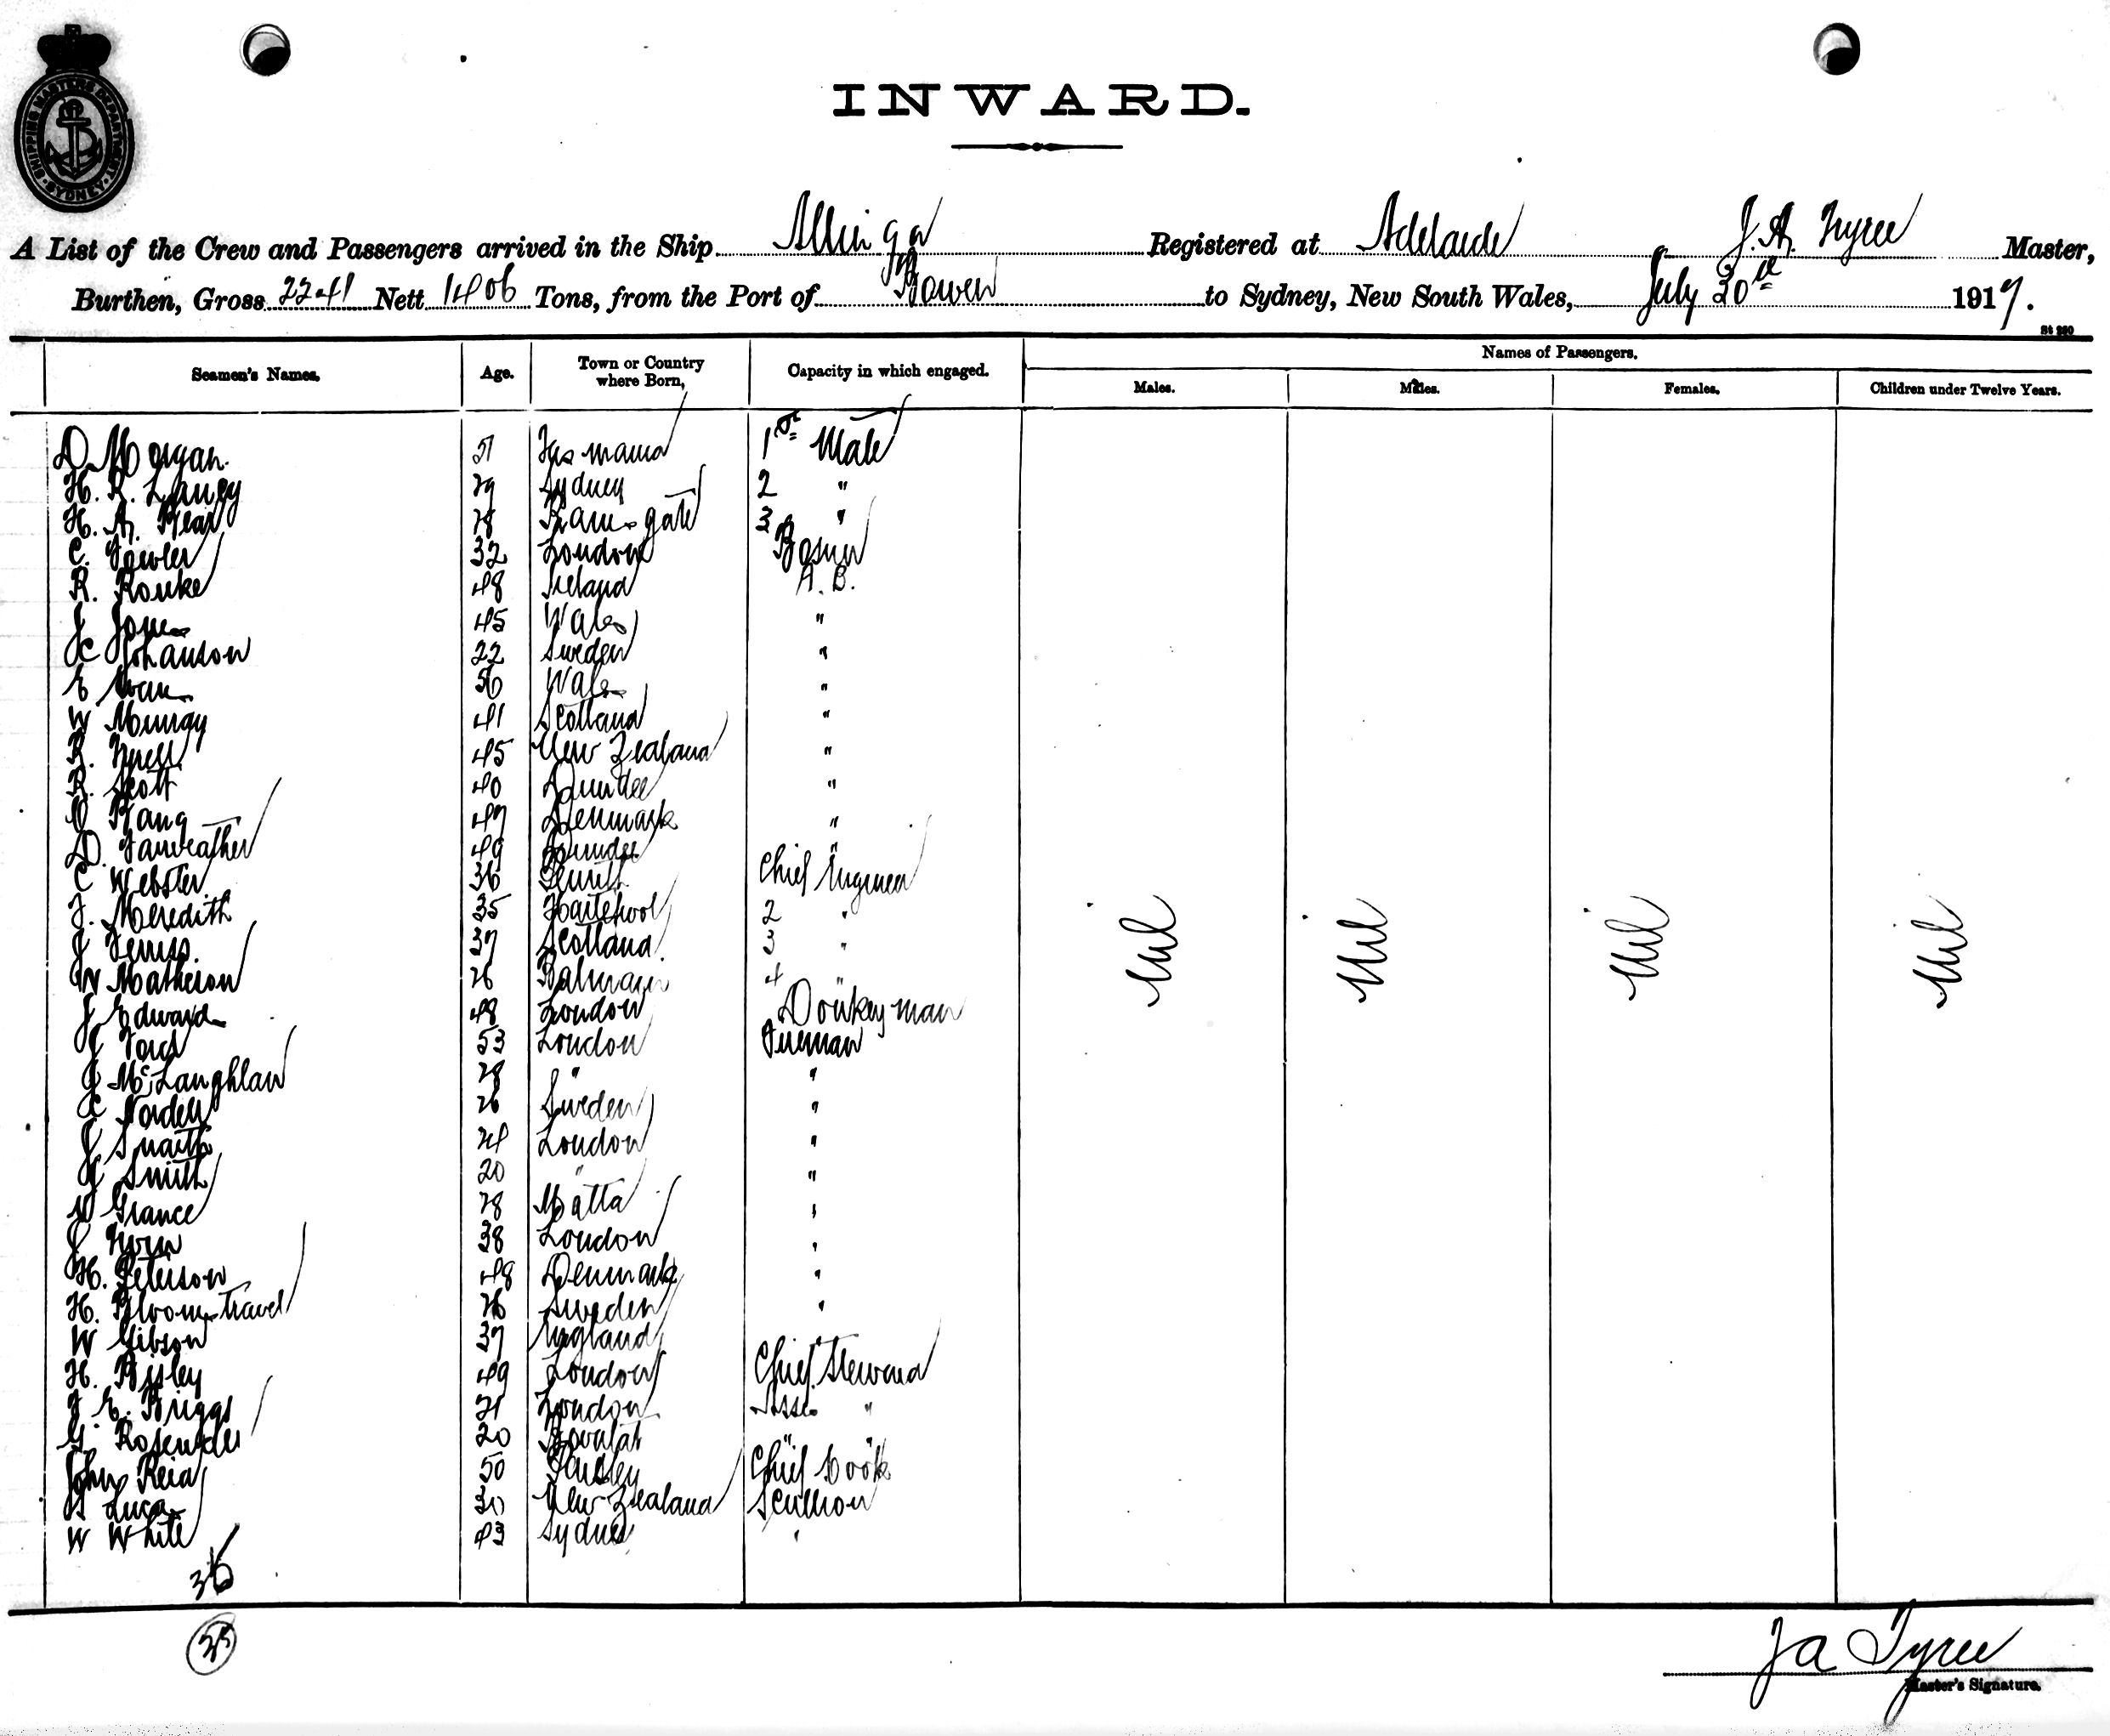 SHIPPING MASTERS DEPARTMENT SYDNEY
INWARD.
A List of the Crew and Passengers arrived in the Ship Allinga Registered at Adelaide J. A. Tyree Master,
Burthen, Gross 2241 Nett 1406 Tons, from the Port of Bowen to Sydney, New South Wales, July 30th 1917.
St 260
Seamen's Names. Age. Town or Country where Born, Capacity in which engaged. Names of Passengers.
Males. Males. Females. Children under Twelve Years.
D. Morgan 51 Tasmania 1st Mate
H. R. 29 Sydney 2 "
H. A. 28 Ramsgate 3 "
C. Fowler 32 London Bosun
R. Rouke 48 Ireland A. B.
J Jones 45 Wales "
C Johanson 22 Sweden "
E Evans 56 Wales "
W Murray 41 Scotland "
R. 45 New Zealand "
R. Scott 40 Dundee "
Bang 47 Denmark "
D. Fairweather 49 Dundee "
C Webster 36 Chief Engineer
J. Meredith 35 Hartlepool 2 "
J 37 Scotland 3 "
W Matheson 26 Balmain 4 "
J Edwards 48 London Donkeyman
J Ford 53 London Fireman
J McLaughlan 28 " "
C Nordell 26 Sweden "
J Snaith 24 London "
J Smith 20 " "
Grance 28 Malta "
J 38 London "
H. Peterson 48 Denmark "
H. 26 Sweden "
W Gibson 37 England
H. Bisley 49 London Chief Steward
J. E. Briggs 21 London Asst "
G. 20 "
John Reid 50 Chief Cook
Luca 30 New Zealand Scullion
W White 43 Sydney "
Nil Nil Nil Nil
36
35
J A Tyree
Master's Signature.